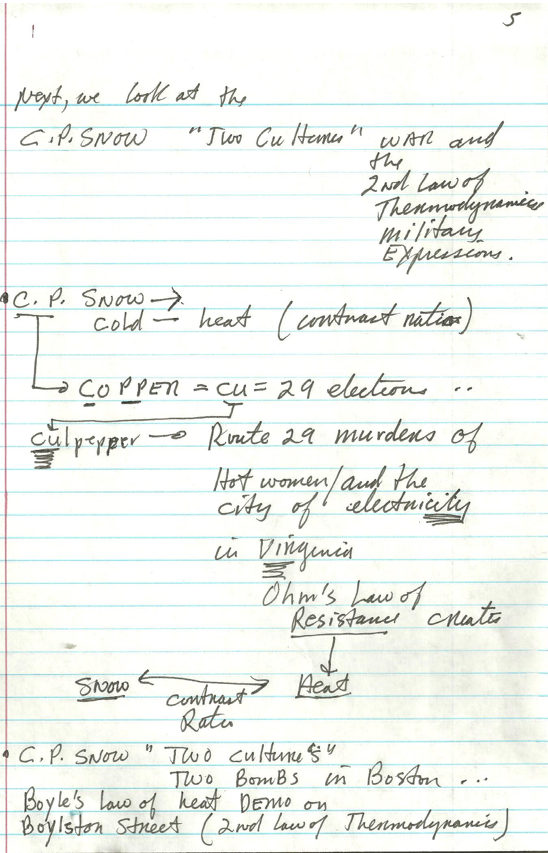 1
5
Next, we look at the
C.P. SNOW "Two Cultures" WAR and
the
2nd Law of
Thermodynamics
military
Expressions.
• C. P. SNOW →
cold — heat (contrast ratio)
→ COPPER = CU = 29 electrons ..
Culpepper → Route 29 murders of
Hot women/and the
city of electricity
in Virginia
Ohm's Law of
Resistance creates
SNOW ↔ Heat
contrast
Ratio
• C.P. SNOW "Two cultures"
TWO BOMBS in Boston ...
Boyle's Law of heat DEMO on
Boylston Street (2nd law of Thermodynamics)